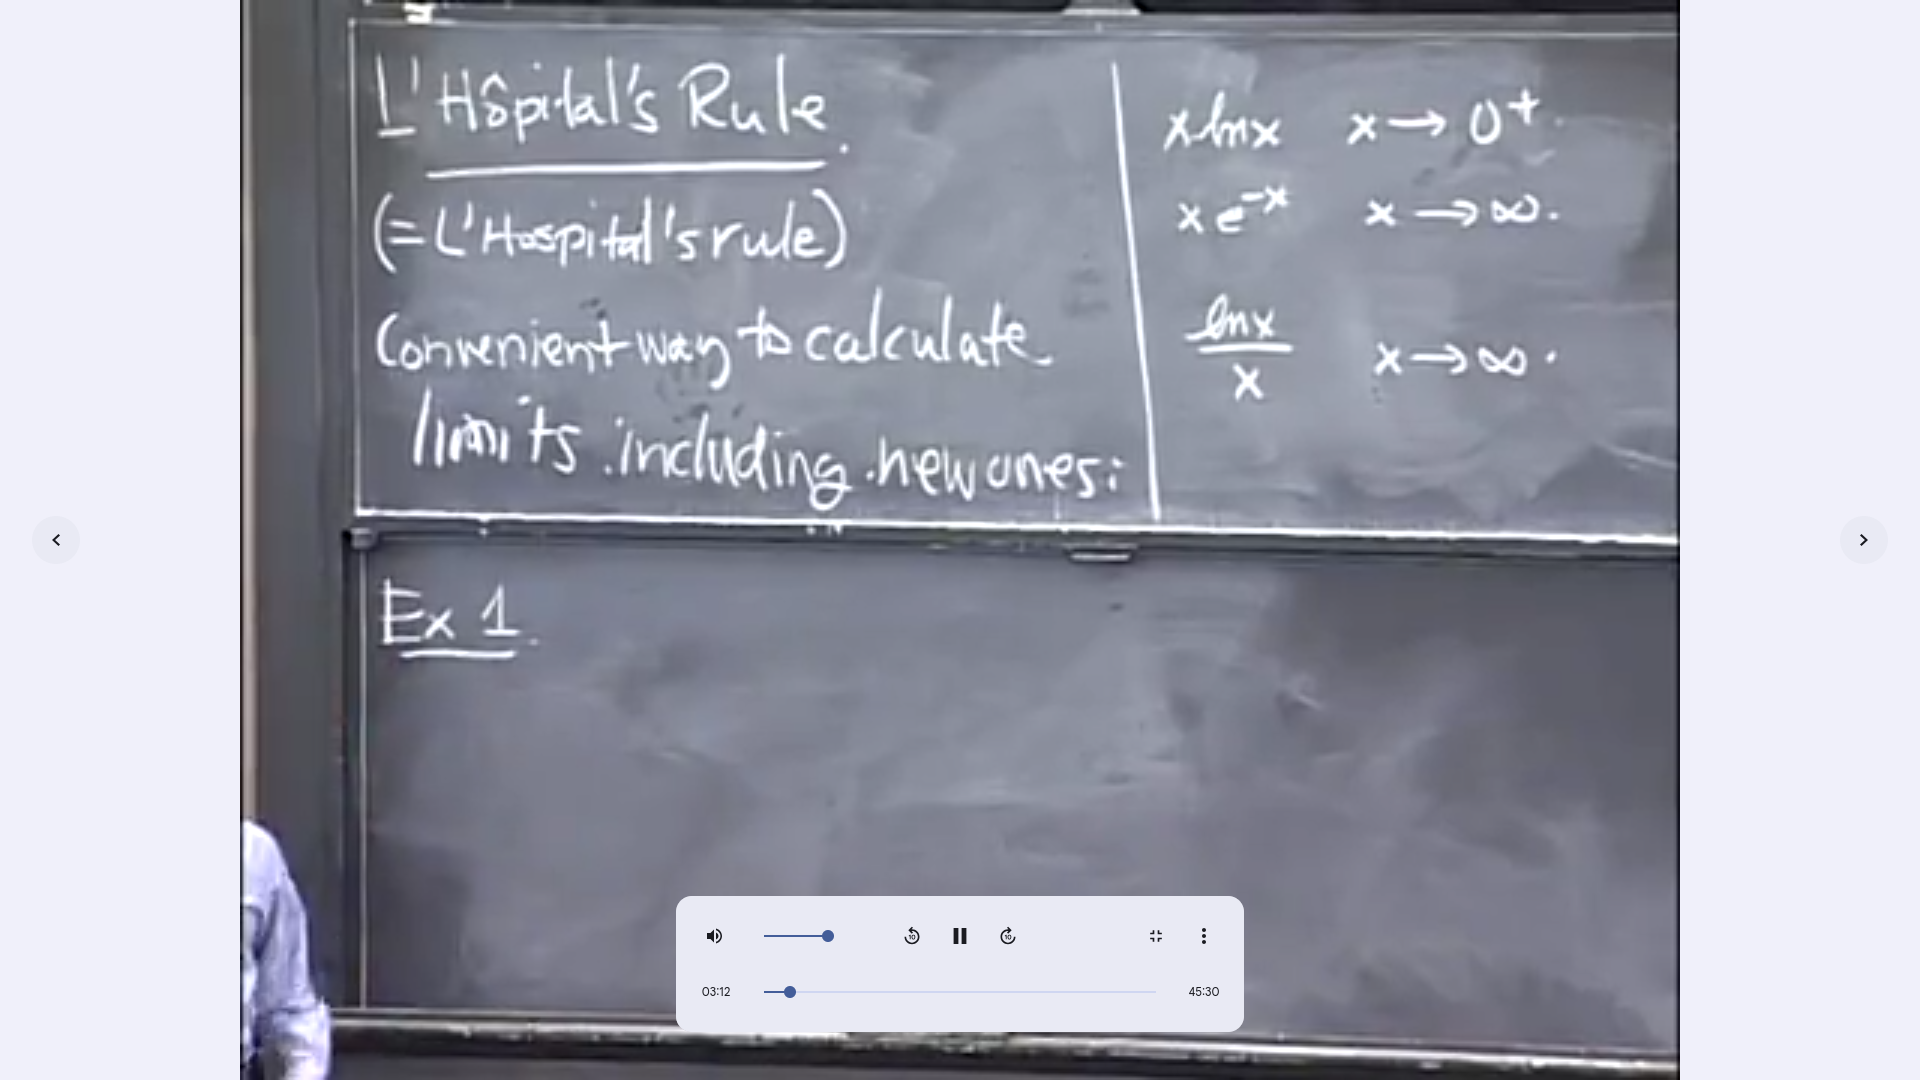 L'Hôpital's Rule.
(= L'Hospital's rule)
Convenient way to calculate
limits including new ones:
x ln x x → 0⁺
x e⁻ˣ x → ∞.
ln x / x x → ∞.
Ex 1.
10
10
03:12
45:30